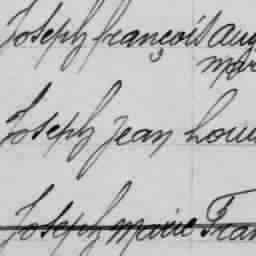 Joseph françois Aug
mar
Joseph Jean Loui
Joseph marie Fran